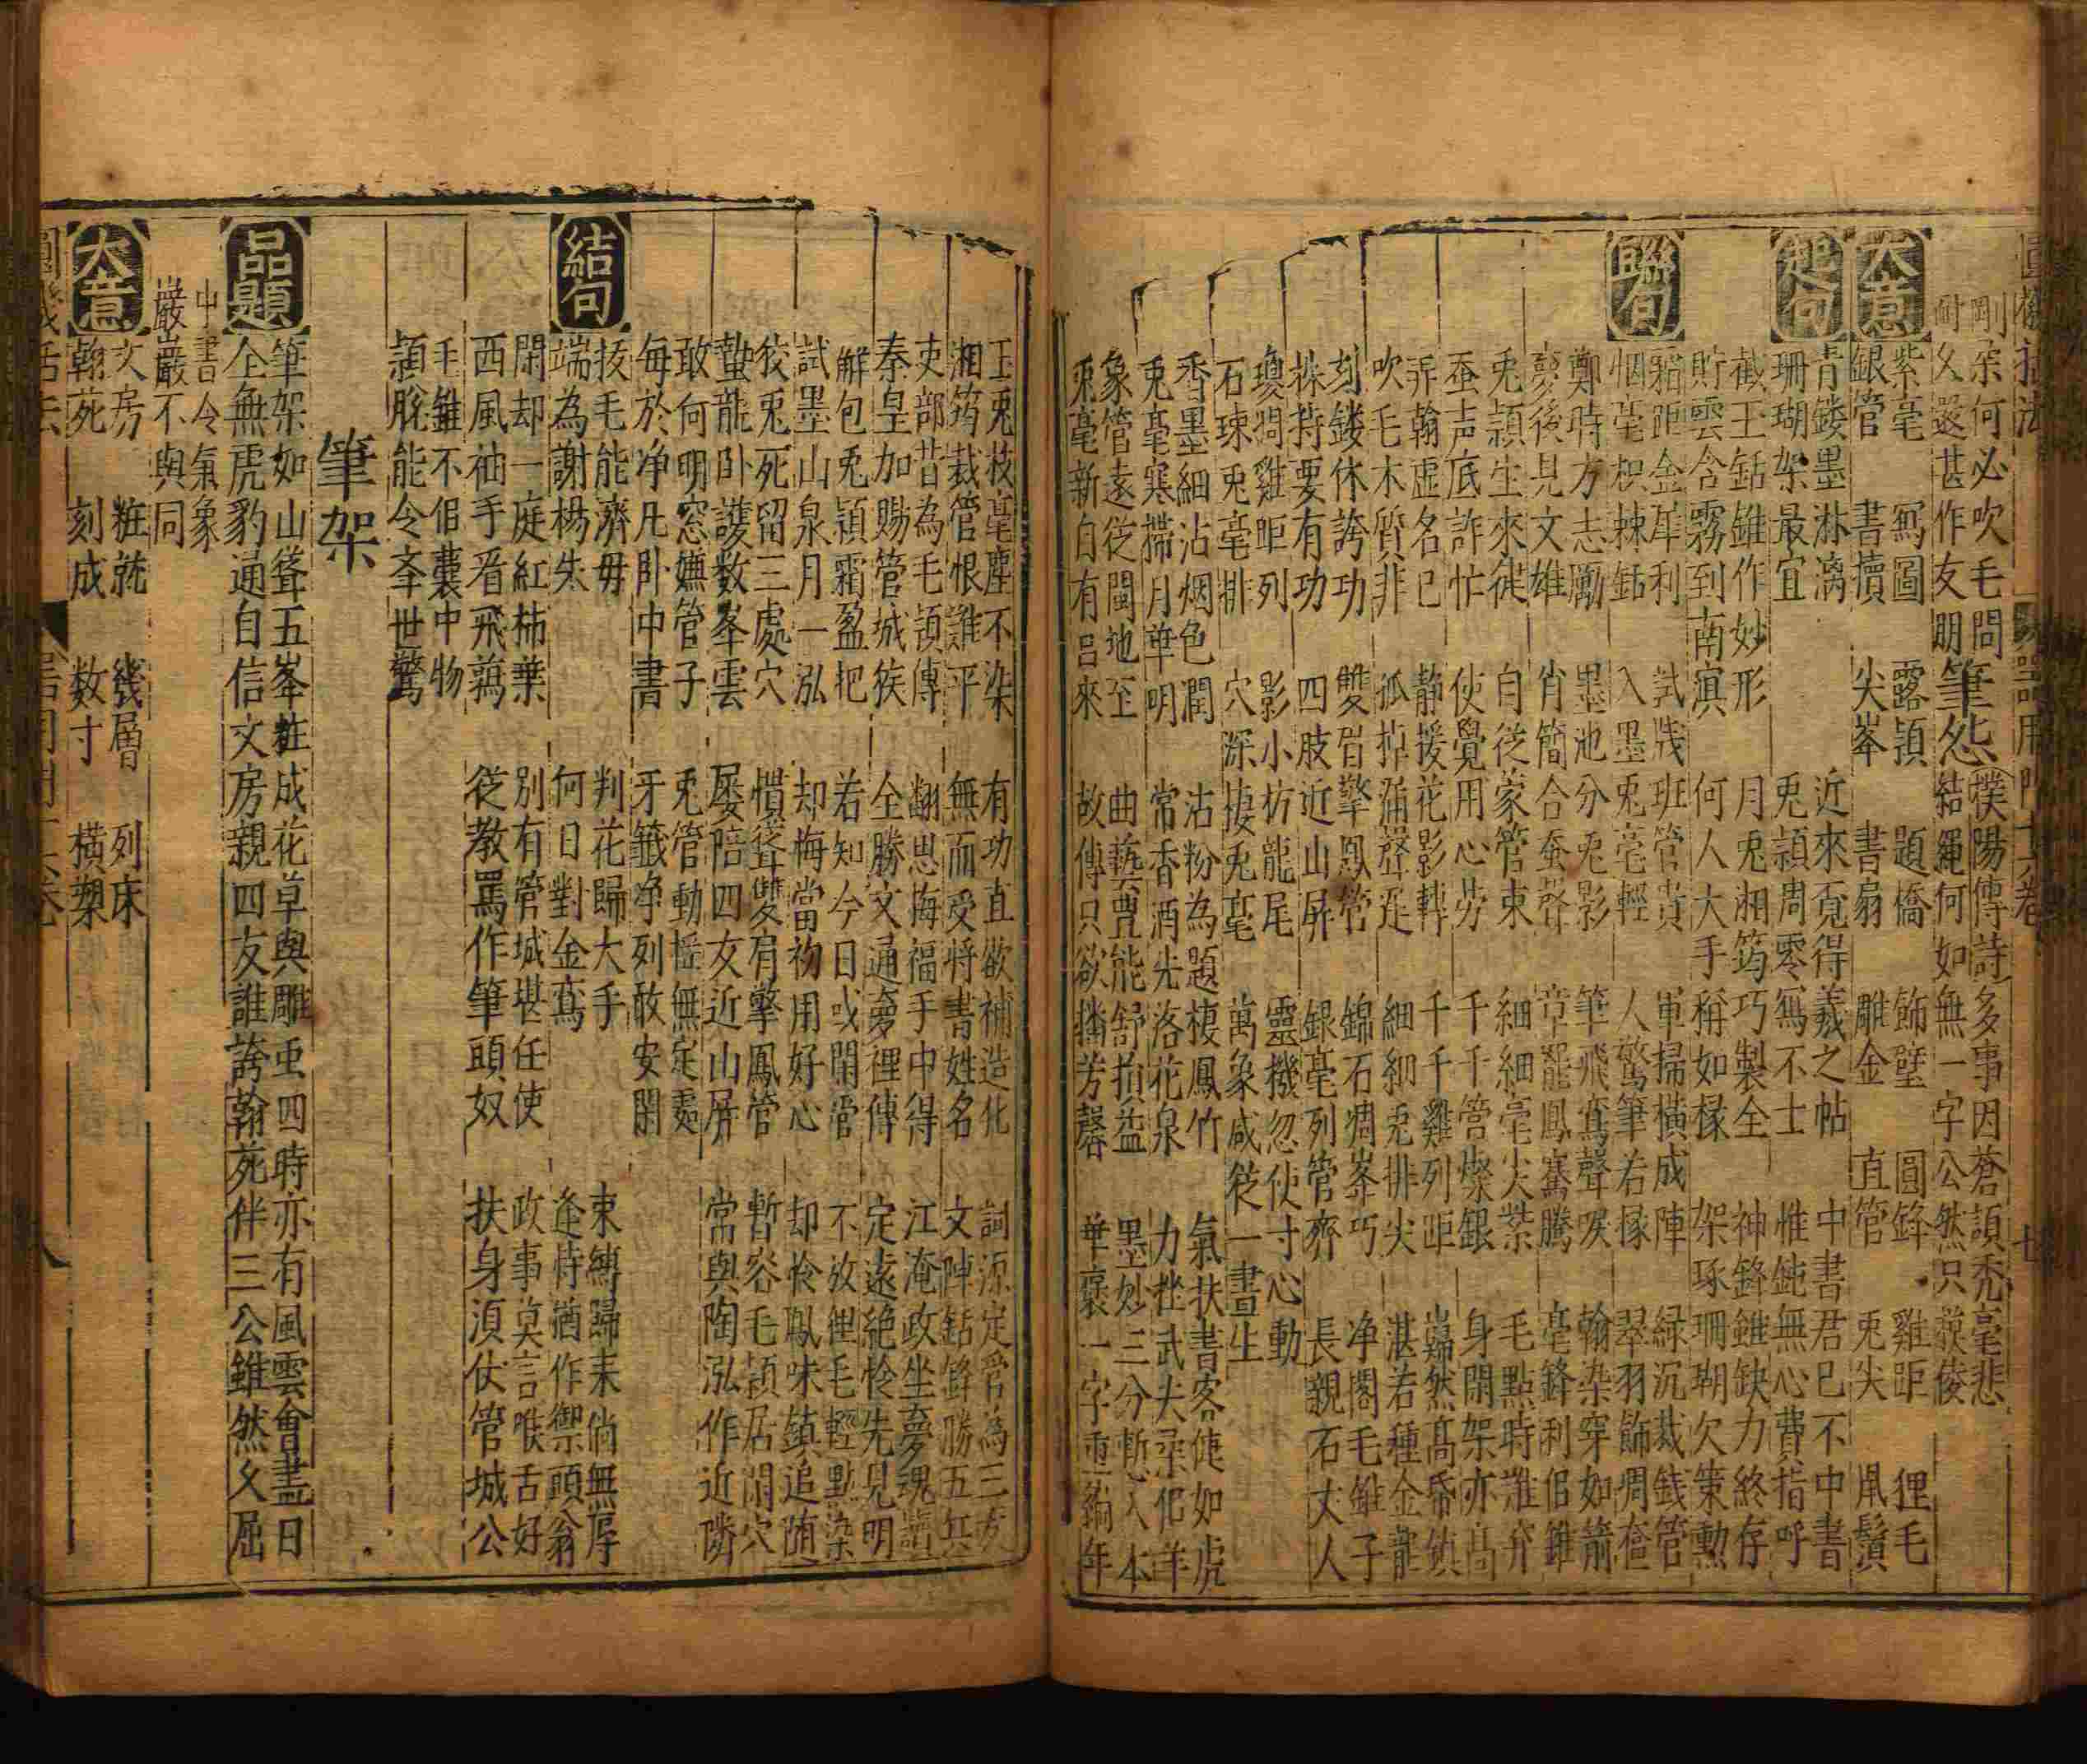 器用門十六卷 七
剛柔何必吹毛問
耐久還甚作友朋
筆怨
撲陽傳詩多事因蒼頡禿毫悲
結繩何如無一字公然只籙俊
大意
紫毫 寫圖 露頴 題橋 飾壁 圓鋒 雞距 狸毛
銀管 書牘 尖峯 書扇 雕金 直管 兎尖 鼠鬚
起句
青鏤墨淋漓 近來覔得羲之帖 中書君已不中書
珊瑚架最宜 兎頴周零寫不士 惟鈍無心費指呼
截玉銛錐作妙形 月兎湘筠巧製全 神鋒錐缺力終存
貯雲含霧到南溟 何人大手稱如椽 架琢珊瑚欠策勲
聯句
雞距金犀利 試牋班管貴 軍掃橫成陣 緑沉裁錢管
烟毫枳棘銛 入墨兎毫輕 人驚筆若椽 翠羽飾琱奩
鄭時方志勵 墨池分兎影 筆飛鸞聲唳 翰染穿如箭
夢後見文雄 肖簡合蚕聲 章罷鳳騫騰 毫鋒利侶錐
兎頴生來徤 自從蒙管束 細細毫尖紮 毛點時難弃
蚕声底詐忙 使覺用心劳 千千管燦銀 身閒架亦高
弄翰虛名已 静援花影轉 千千雞列距 嵓然高帋鎮
吹毛木質非 孤掉涌聲迟 細細兎排尖 湛若種金龍
刻鏤休誇功 雙眉擎鳳管 錦石琱峯巧 净閣毛錐子
操持要有功 四肢近山屏 銀毫列管齊 長親石丈人
瓊捐雞距列 影小坊龍尾 靈機忽使寸心動
石竦兎毫排 穴深捿兎毫 萬象咸從一畫生
香墨細沾烟色潤 沾粉為題棲鳳竹 氣扶書客徤如虎
兎毫寒掃月華明 常香洒先落花泉 力挫武夫柔佀羊
象管遠從閩地至 曲藝豊能舒損益 墨妙三分慙入本
兎毫新自有呂來 故傳只欲播芳馨 華褒一字重編年
玉兎枝毫塵不染 有功直欲補造化 詞源定管為三友
湘筠裁管恨難平 無而受將書姓名 文陣銛鋒勝五兵
吏部昔為毛頴傳 翻思海福手中得 江淹政坐夢魂
秦皇加賜管城侯 全勝文通夢裡傳 定遠絶怜先見明
解包兎頴霜盈把 若知今日或閒常 不放狸毛輕點染
試墨山泉月一泓 却悔當初用好心 却怜鳳味鎮追随
狡兎死留三處穴 慣聳雙肩擎鳳管 暫容毛頴居閒穴
蟄龍卧護數峯雲 屡陪四友近山屏 常與陶泓作近隣
敢何明窓嫵管子 兎管動摇無定處
每於净凡卧中書 牙籤净列敢安閒
結句
拔毛能濟毋 判花歸大手 束縛歸来倘無辱
端為謝楊朱 何日對金鸞 逢時猶作禦頭翁
閑却一庭紅柿葉 別有管城堪任使 政事莫言喉舌好
西風袖手看飛鴉 從教罵作筆頭奴 扶身湏仗管城公
毛錐不佀囊中物
頴脫能令夲世驚
筆架
品題
筆架如山聳五峯粧成花草與雕䖝四時亦有風雲會盡日
仝無虎豹通自信文房親四友誰誇翰苑伴三公雖然久屈
中書令氣象
巖巖不與同
大意
文房 粧就 幾層 列床
翰苑 刻成 数寸 横架
八